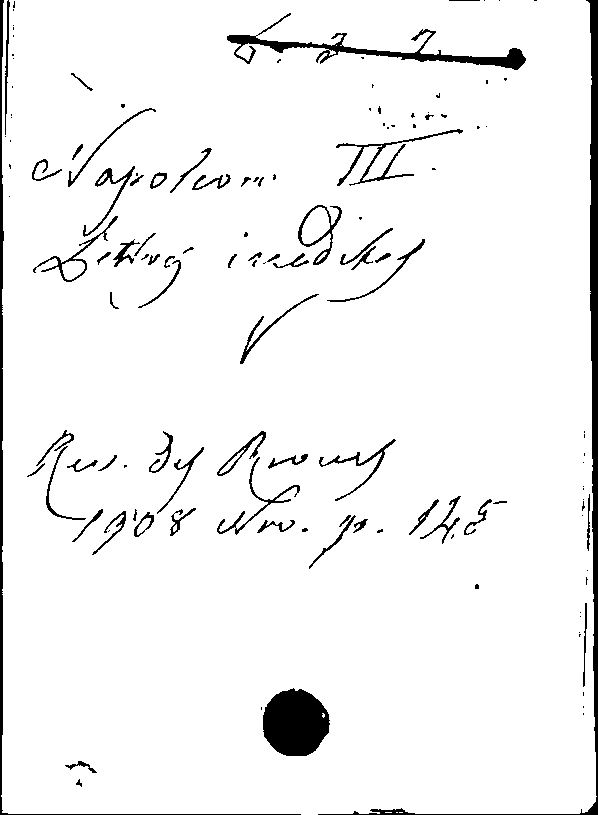 6. 3. 2.
Napoleon III.
Lettres inédites
Rev. des Revues
1908 Nro. p. 145